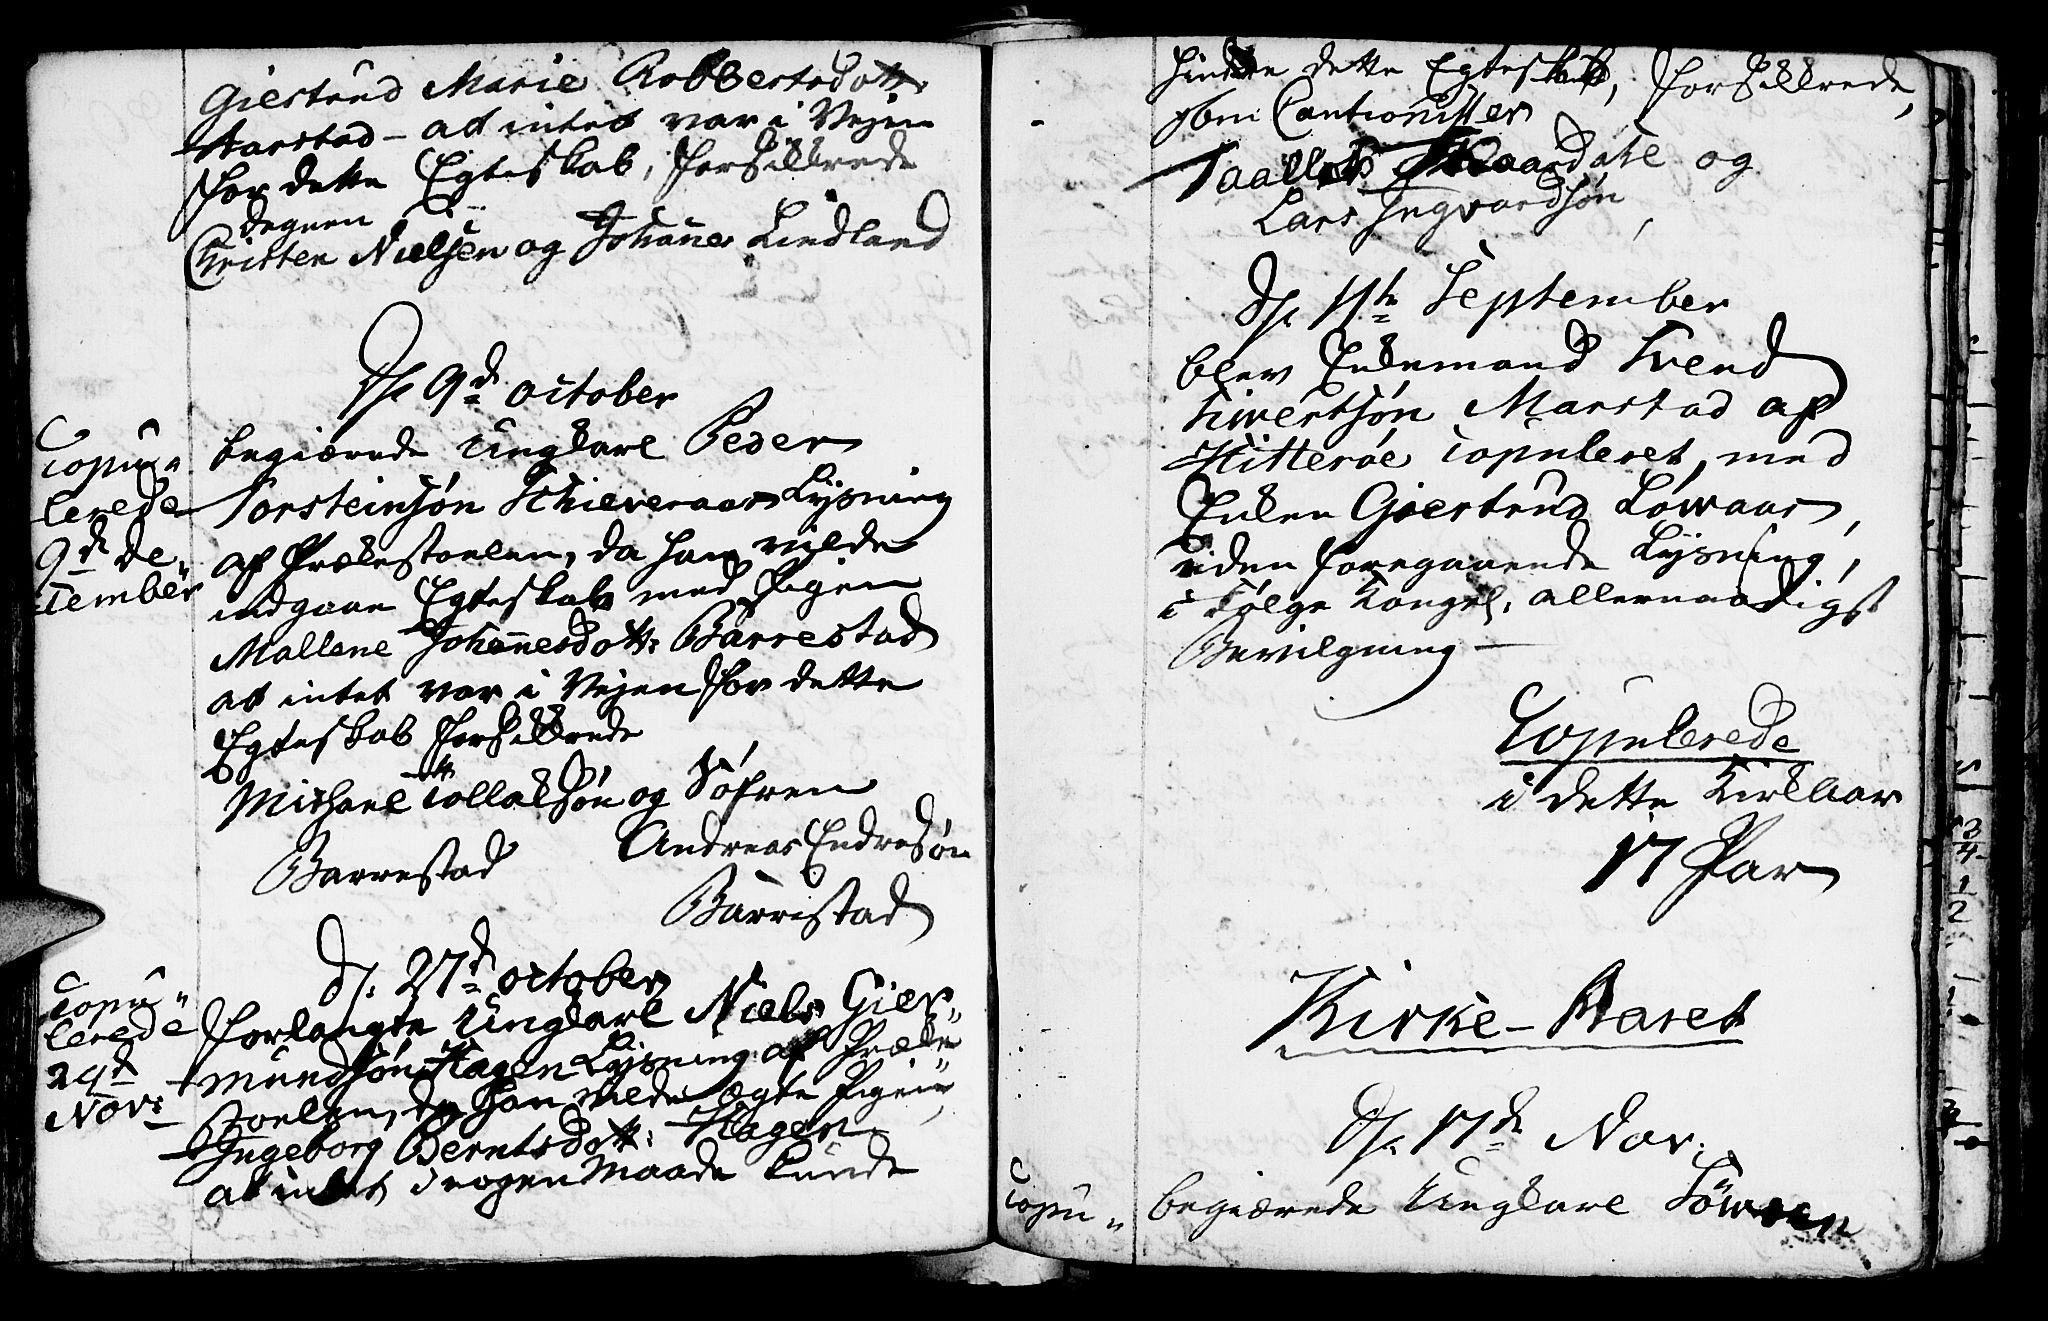 Giertrud Marie Robbertsdott:
Harstad – at intet var i Vejen
for dette Egteskab, forsikkrede
degnen
Christen Nielsen og Johannes Lindland
D. 9de October
Copu=
lerede
9de De=
cember
begiærede Ungkarl Peder
Torsteinsøn Schieveraas Lysning
af Prækestoelen, da han vilde
indgaae Egteskab med Pigen
Mallene Johannesdott: Barrestad
at intet var i Vejen for dette
Egteskab forsikkrede
Michael Tollalsøn og Søfren
Barrestad Andreas Endresøn
Barrestad
D. 27de October
Copu=
lerede
29de
Nov:
forlangte Ungkarl Niels Gier=
mundsøn Hagen Lysning af Præke
stoelen, da han vilde ægte Pigen
Ingeborg Berntsdott: Hagen
at intet i nogen Maade kunde
hindre dette Egteskab, forsikkrede,
som Cautionister
Taallef Skaardahl og
Lars Ingvardsøn,
D. 11te September
blev Enkemand Svend
Sivertsøn Marstad af
Hitterøe Copuleret, med
Enken Giertrud Løwaas,
uden foregaaende Lysning,
i Følge Kongel: allernaadigst
Bevilgning –
Copulerede
i dette Kirkeaar
17 Par
Kirke-Aaret
D. 17de Nov.
Copu=
begiærede Ungkarl